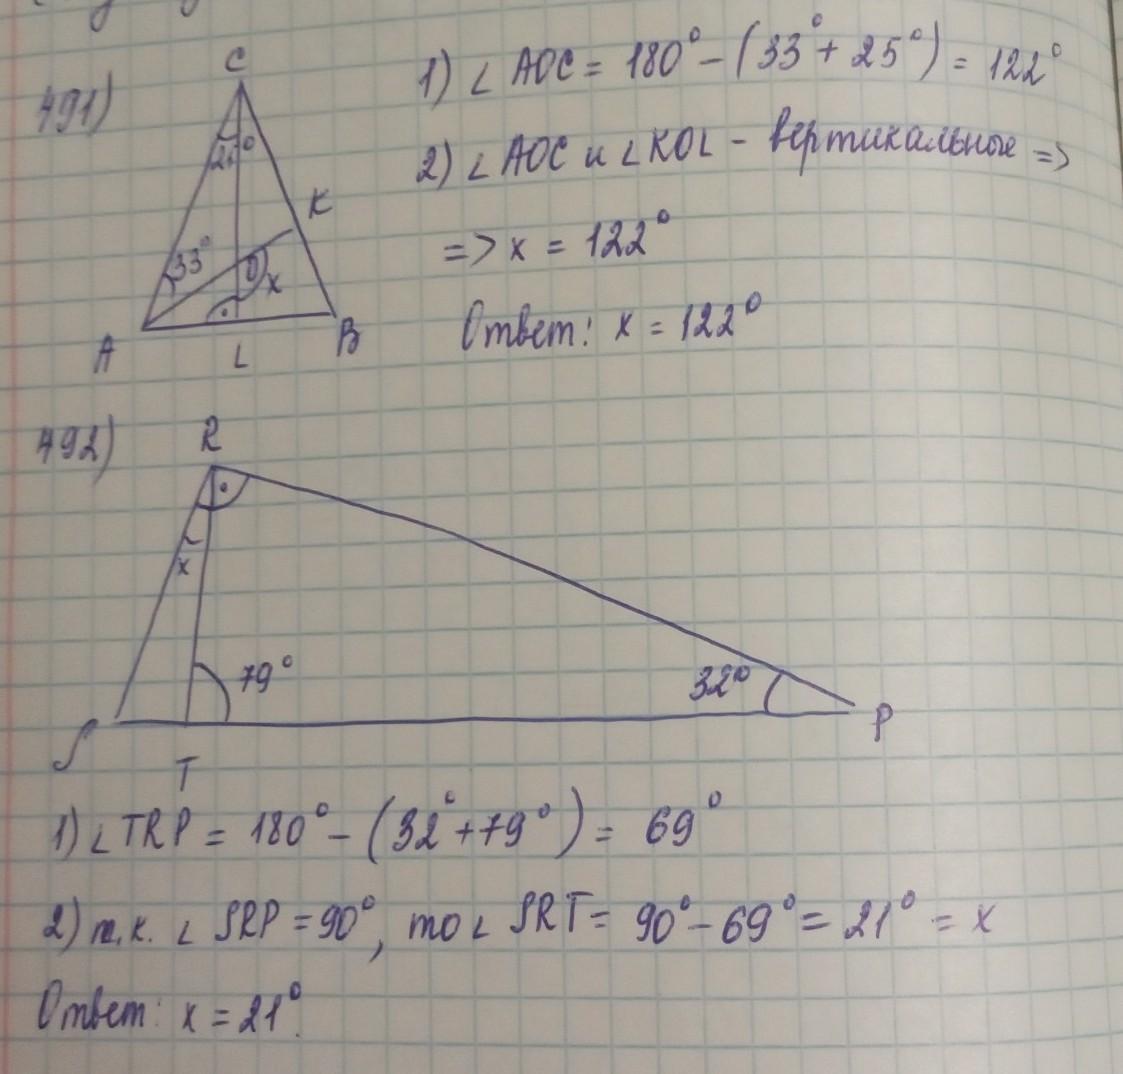 491)
C
25°
K
33°
O
x
A
L
B
1) ∠ AOC = 180° - (33° + 25°) = 122°
2) ∠ AOC и ∠ KOL - вертикальные =>
=> x = 122°
Ответ: x = 122°
492)
R
x
79°
32°
S
T
P
1) ∠ TRP = 180° - (32° + 79°) = 69°
2) т.к. ∠ SRP = 90°, то ∠ SRT = 90° - 69° = 21° = x
Ответ: x = 21°.